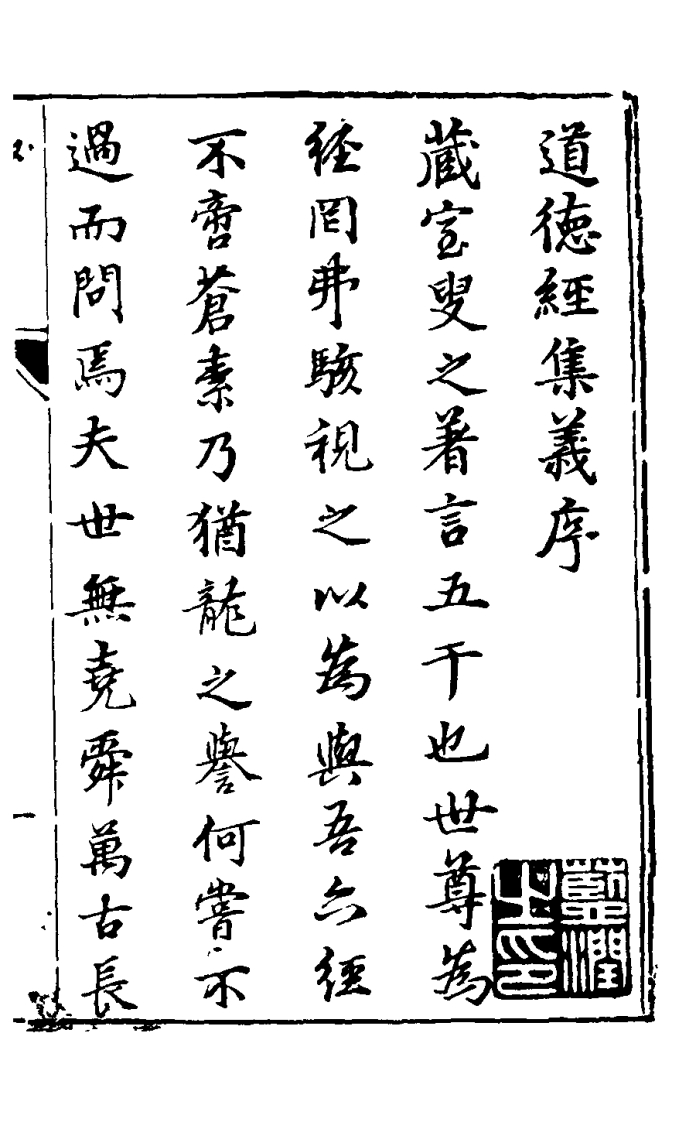 道德經集義序
藏室叟之著言五千也世尊為
經罔弗駭視之以為與吾六經
不啻蒼素乃猶龍之譽何嘗不
過而問焉夫世無堯舜萬古長
藍潤之印
一